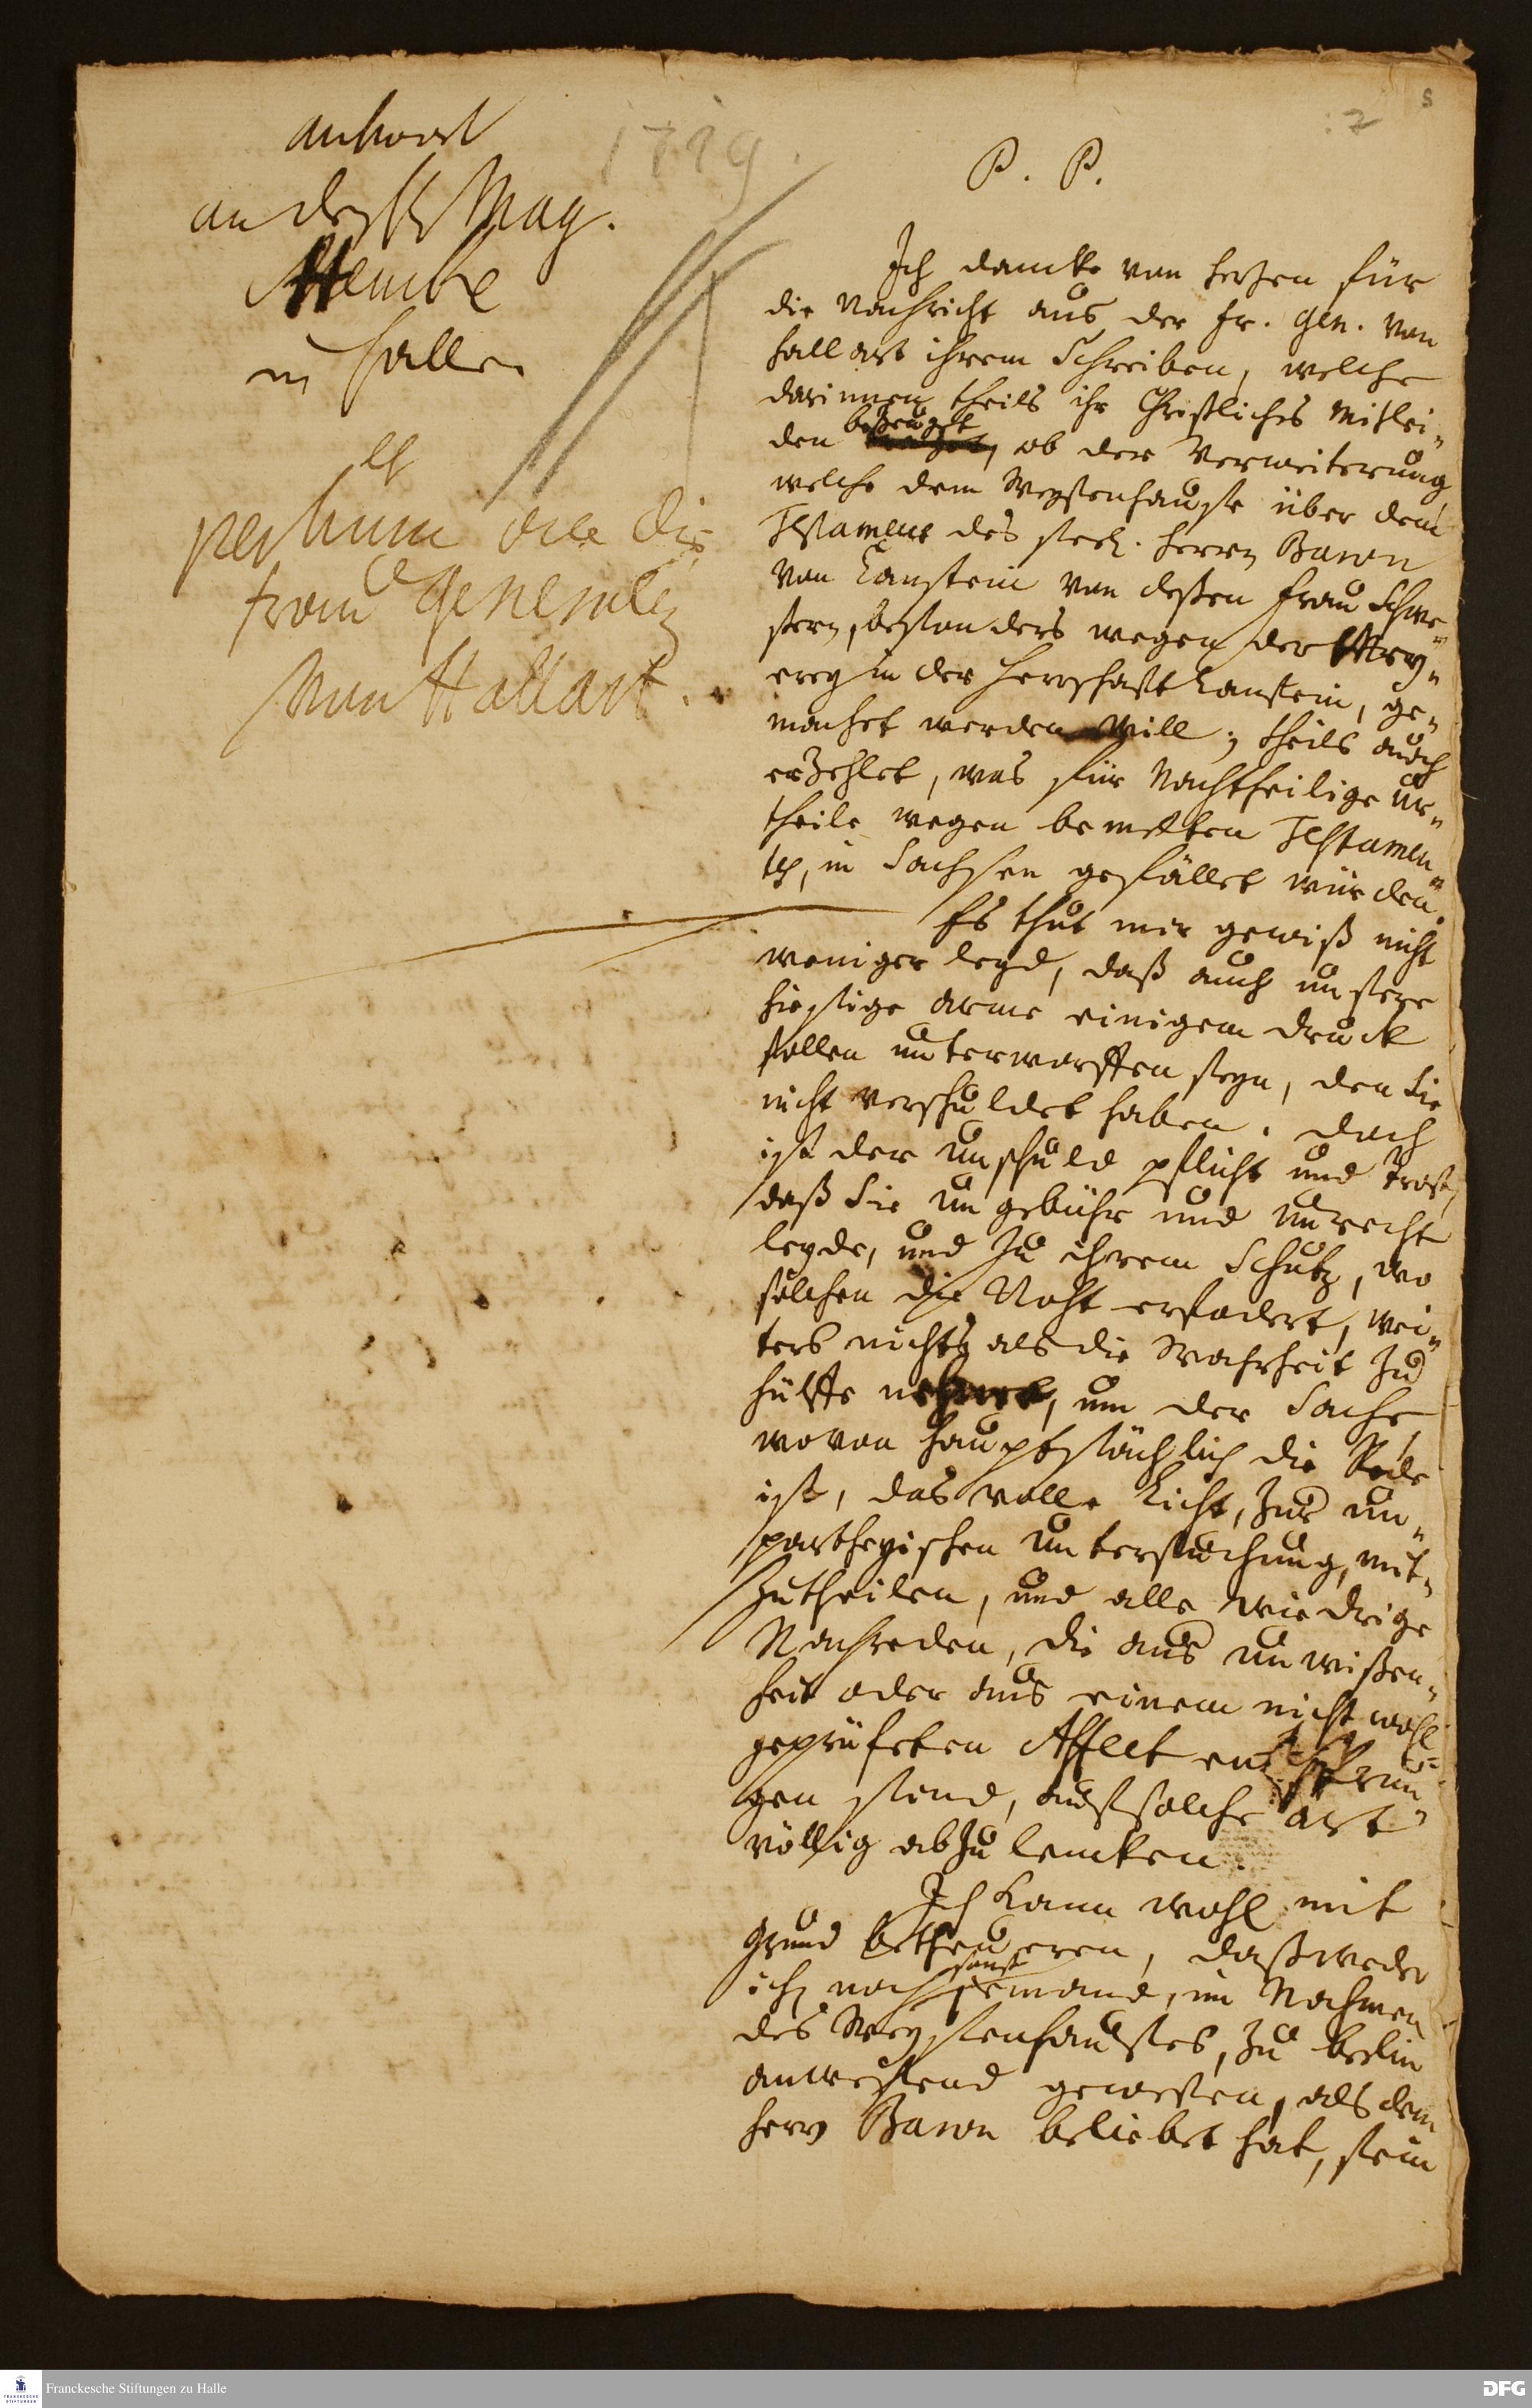 1719.
:2
antwort
an des H. Mag.
in Halle.
et
die
frau Generalin
von Hallart.
P. P.
Ich dancke von herzen für
die Nachricht aus der fr. Gen. von
Hallart ihrem Schreiben, welche
darinnen theils ihr Christliches Mitlei„
den bezeuget, ob der Verweiterung
welche dem Waysenhause über dem
Testament des seel. Herrn Baron
von Canstein von deßen Frau Schwe„
stern, besonders wegen der
in der Herrschafft Canstein, ge„
machet werden will; theils auch
erzehlet, was für Nachtheilige Ur„
theile wegen bemelten Testamen„
tes, in Sachsen gefället würden.
Es thut mir gewiß nicht
weniger leyd, daß auch unsere
hiesige arme einigem druck
sollen unterworffen seyn, den Sie
nicht verschuldet haben. doch
ist der unschuld pflicht und Trost,
daß Sie ungebühr und unrecht
leyde, und zu ihrem Schutz, wo
solchen die Noht erfodert, wei„
ters nichts als die Wahrheit zu
hülffe nehme, um der Sache,
wovon hauptsächlich die Rede
ist, das volle Licht, zur un„
partheyischen untersuchung, mit„
zutheilen, und alle wiedrige
Nachreden, die aus unwißen„
heit oder aus einem nicht wohl
geprüfeten Affect entsprun„
gen seind, auf solche art
völlig abzulencken.
Ich kann wohl mit
Grund betheueren, daß weder
ich noch sonst jemand, im Nahmen
des Waysenhauses, zu Berlin
anwesend gewesen, als dem
Herrn Baron beliebet hat, sein
Franckesche Stiftungen zu Halle
DFG